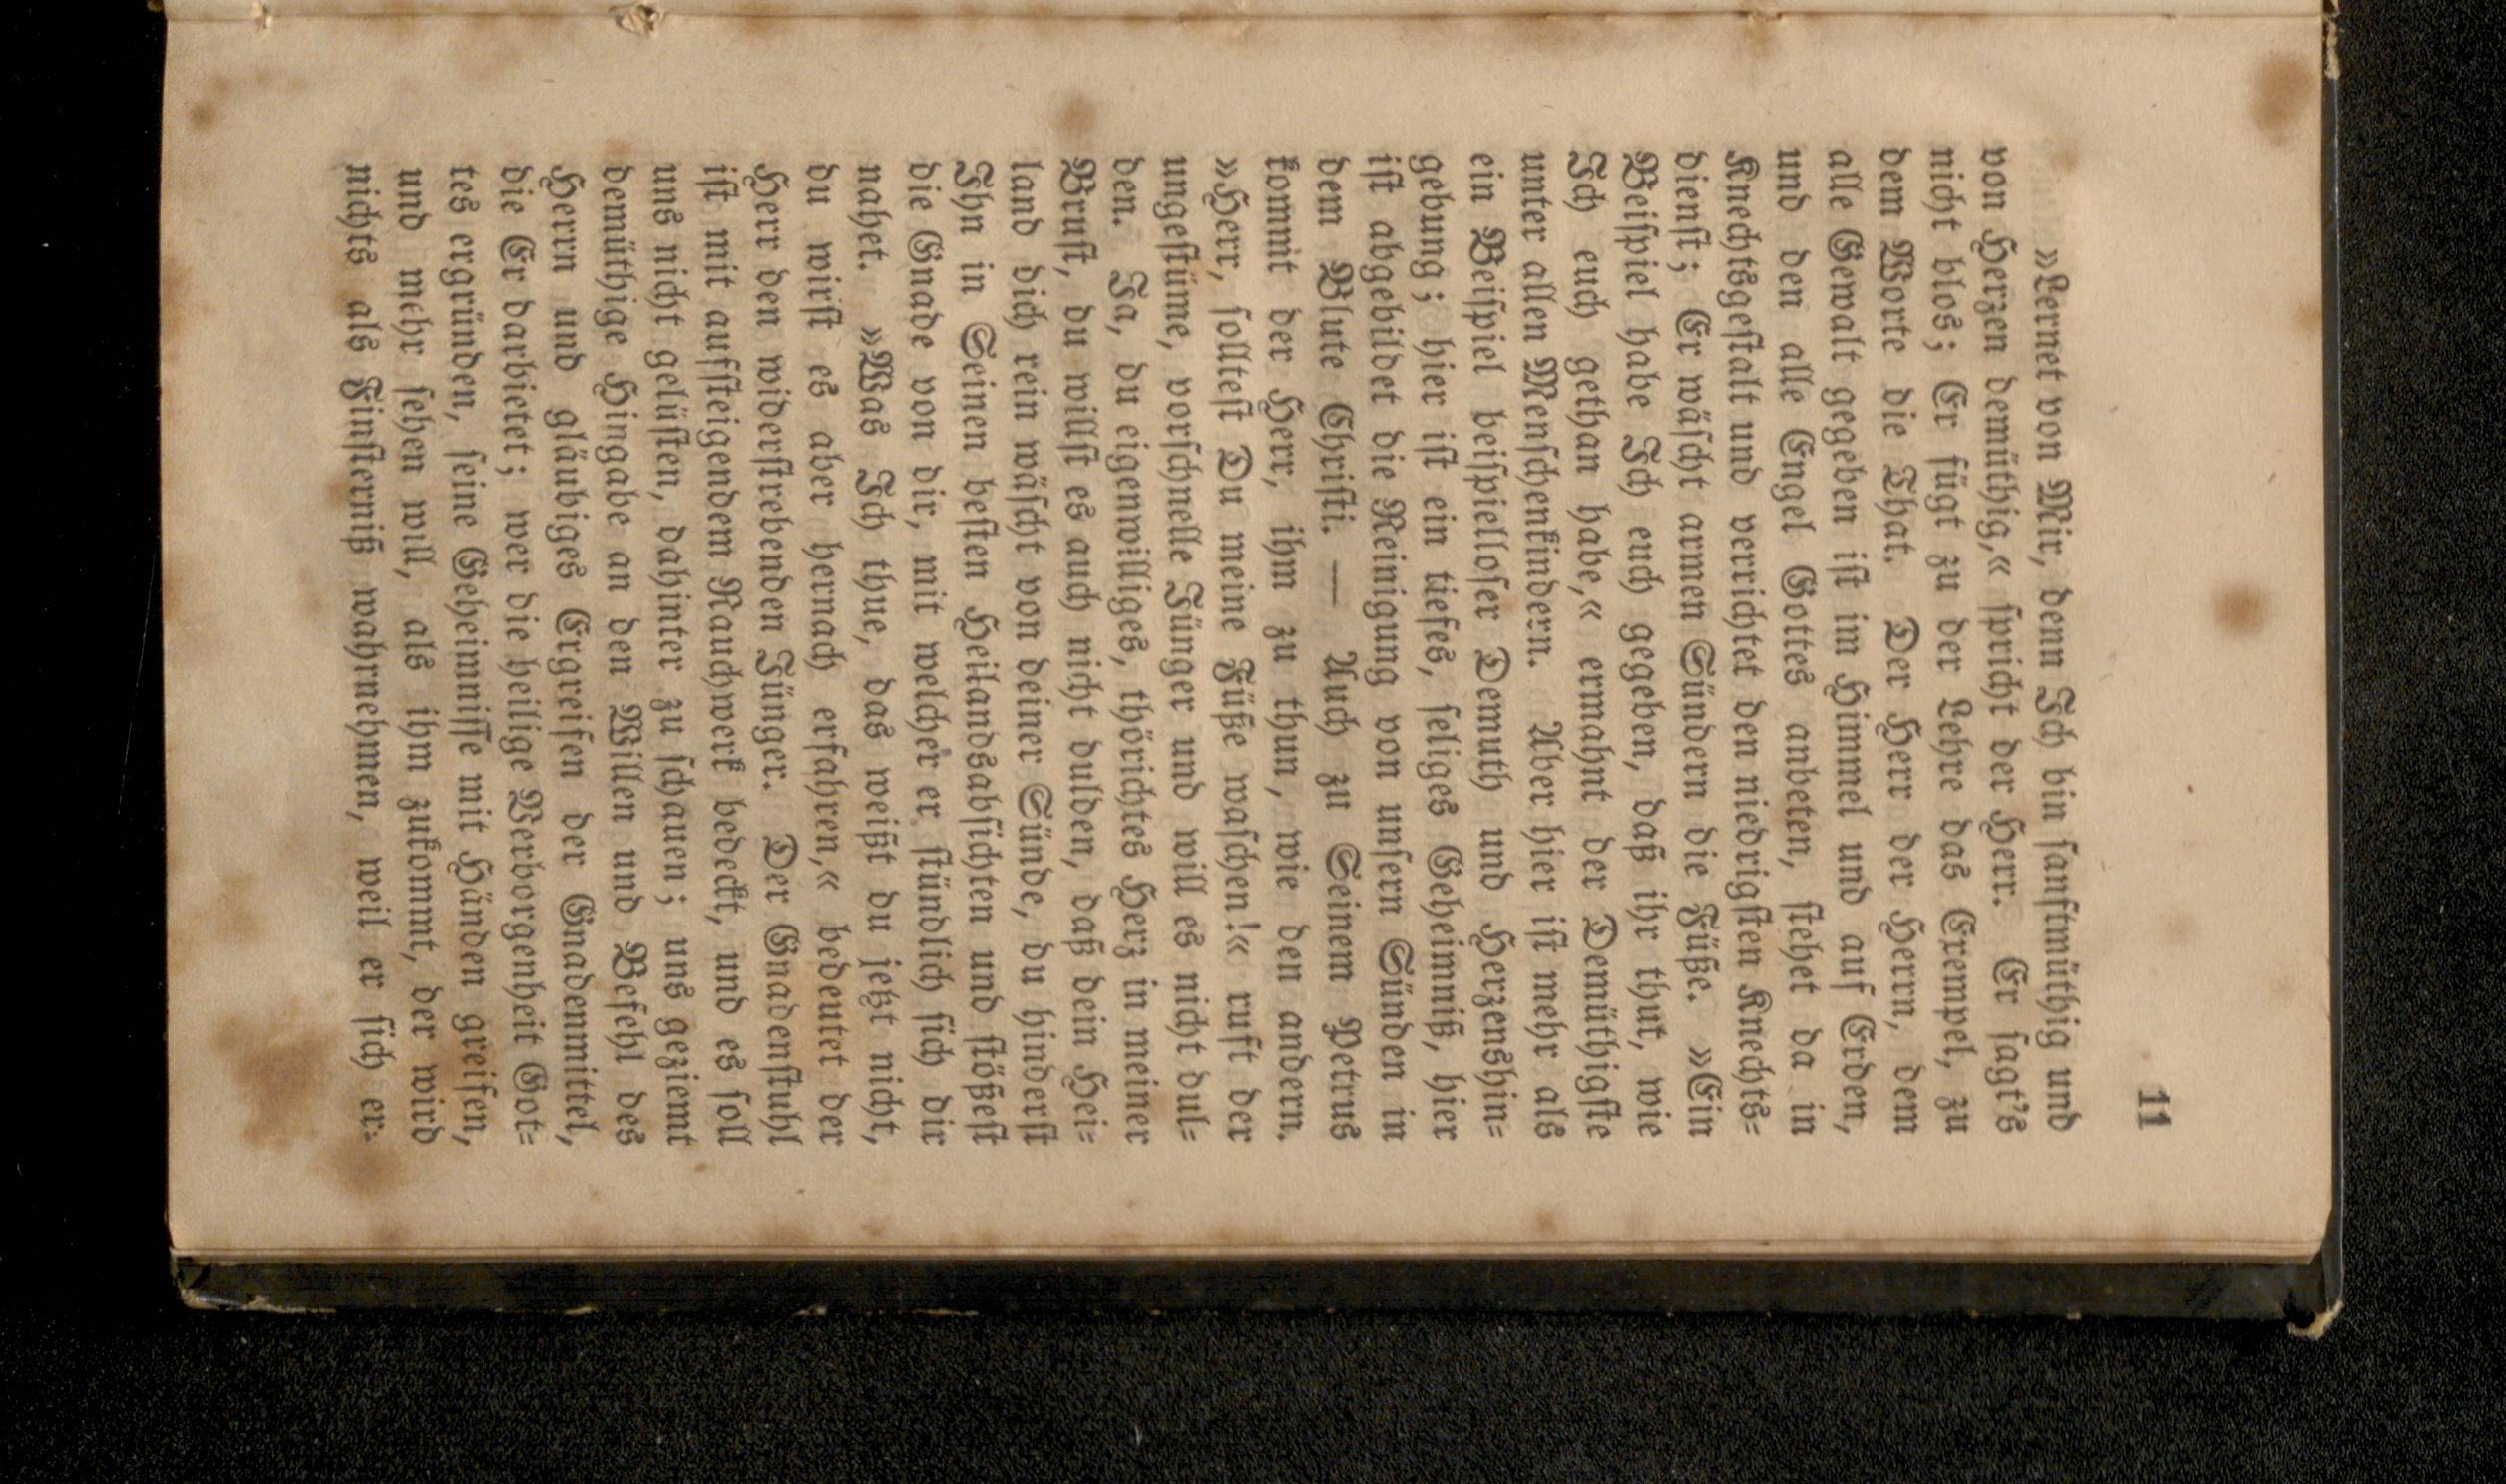 11
»Lernet von Mir, denn Ich bin sanftmüthig und
von Herzen demüthig,« spricht der Herr. Er sagt's
nicht blos; Er fügt zu der Lehre das Exempel, zu
dem Worte die That. Der Herr der Herrn, dem
alle Gewalt gegeben ist im Himmel und auf Erden,
und den alle Engel Gottes anbeten, stehet da in
Knechtsgestalt und verrichtet den niedrigsten Knechts-
dienst; Er wäscht armen Sündern die Füße. »Ein
Beispiel habe Ich euch gegeben, daß ihr thut, wie
Ich euch gethan habe,« ermahnt der Demüthigste
unter allen Menschenkindern. Aber hier ist mehr als
ein Beispiel beispielloser Demuth und Herzenshin-
gebung; hier ist ein tiefes, seliges Geheimniß, hier
ist abgebildet die Reinigung von unsern Sünden in
dem Blute Christi. — Auch zu Seinem Petrus
kommt der Herr, ihm zu thun, wie den andern.
»Herr, solltest Du meine Füße waschen!« ruft der
ungestüme, vorschnelle Jünger und will es nicht dul-
den. Ja, du eigenwilliges, thörichtes Herz in meiner
Brust, du willst es auch nicht dulden, daß dein Hei-
land dich rein wäscht von deiner Sünde, du hinderst
Ihn in Seinen besten Heilandsabsichten und stößest
die Gnade von dir, mit welcher er stündlich sich dir
nahet. »Was Ich thue, das weißt du jetzt nicht,
du wirst es aber hernach erfahren,« bedeutet der
Herr den widerstrebenden Jünger. Der Gnadenstuhl
ist mit aufsteigendem Rauchwerk bedeckt, und es soll
uns nicht gelüsten, dahinter zu schauen; uns geziemt
demüthige Hingabe an den Willen und Befehl des
Herrn und gläubiges Ergreifen der Gnadenmittel,
die Er darbietet; wer die heilige Verborgenheit Got-
tes ergründen, seine Geheimnisse mit Händen greifen,
und mehr sehen will, als ihm zukommt, der wird
nichts als Finsterniß wahrnehmen, weil er sich er-